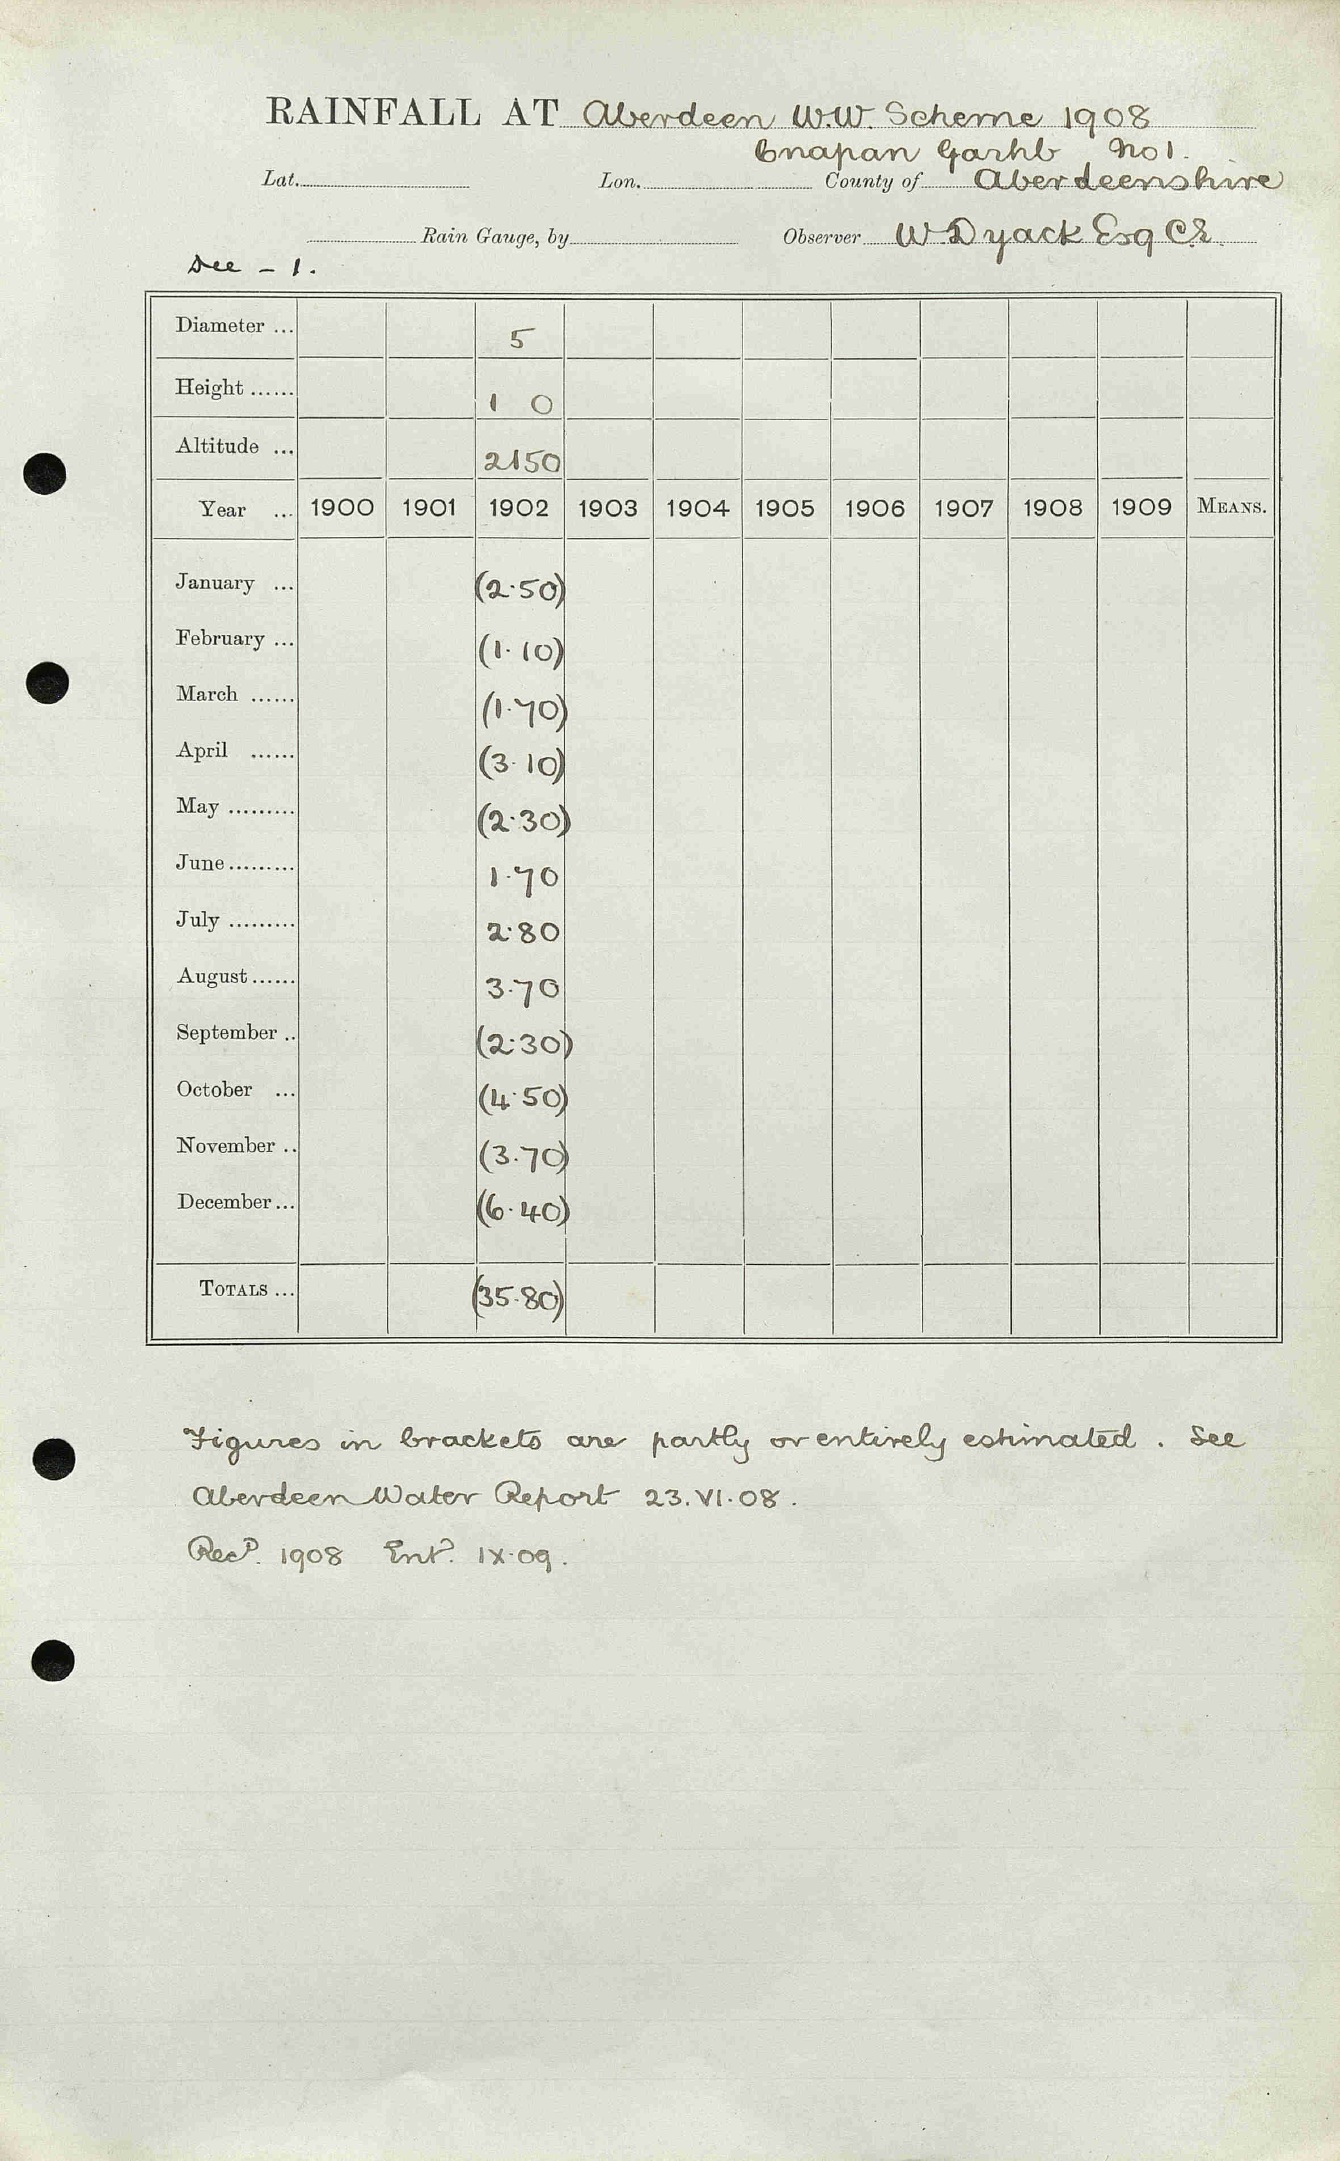 RAINFALL AT Aberdeen W.W. Scheme 1908
Cnapan Garhb No 1.
Lat. Lon. County of Aberdeenshire
Rain Gauge, by Observer W Dyack Esq C.E.
Dee - 1.
Diameter ... 5
Height ...... 1 0
Altitude ... 2150
Year ... 1900 1901 1902 1903 1904 1905 1906 1907 1908 1909 MEANS.
January ... (2.50)
February ... (1.10)
March ...... (1.70)
April ...... (3.10)
May ......... (2.30)
June ......... 1.70
July ......... 2.80
August ...... 3.70
September .. (2.30)
October ... (4.50)
November .. (3.70)
December ... (6.40)
TOTALS ... (35.80)
Figures in brackets are partly or entirely estimated. See
Aberdeen Water Report 23.VI.08.
Recd. 1908 Entd. IX.09.